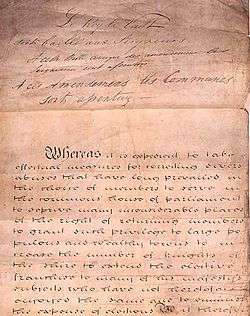 Le Roy le Veult
Soit baillé aux Seigneurs
A ces Amendemens les Communes
Sont assentus
Whereas it is expedient to take
effectual measures for correcting divers
abuses that have long prevailed in
the choice of members to serve in
the commons house of parliament
to deprive many inconsiderable places
of the right of returning members
to grant such privilege to large po
pulous and wealthy towns to in
crease the number of knights of
the shire to extend the elective
franchise to many of his majesty's
subjects who have not heretofore
enjoyed the same and to diminish
the expense of elections Be it therefore